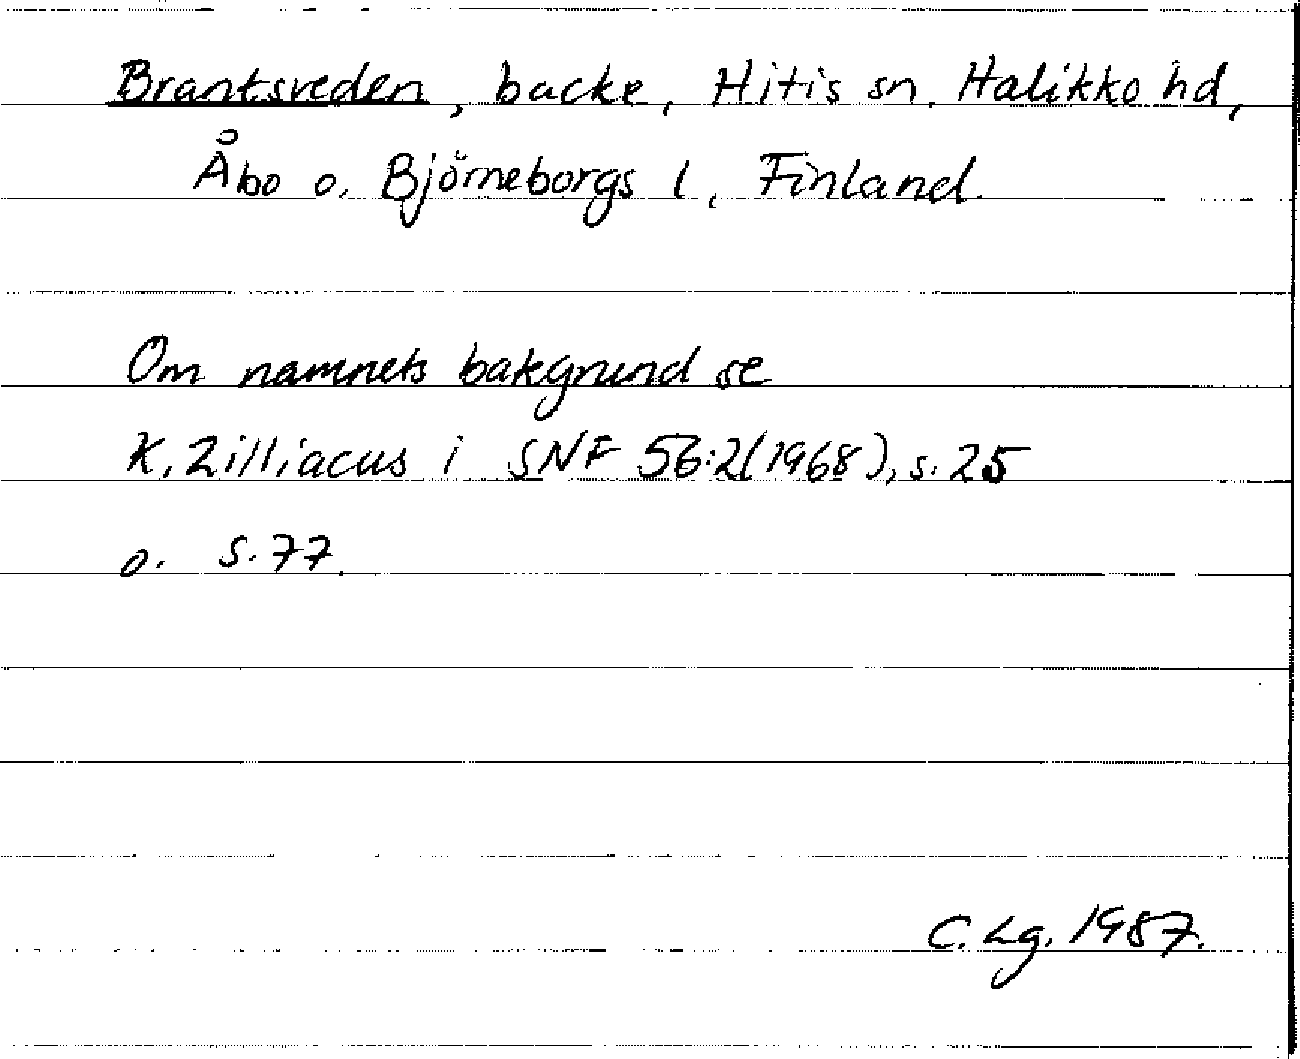 Brantsveden, backe, Hitis sn, Halikko hd,
Åbo o. Björneborgs l, Finland.
Om namnets bakgrund se
K. Zilliacus i SNF 56:2(1968), s. 25
o. s. 77.
C. Lg. 1987.